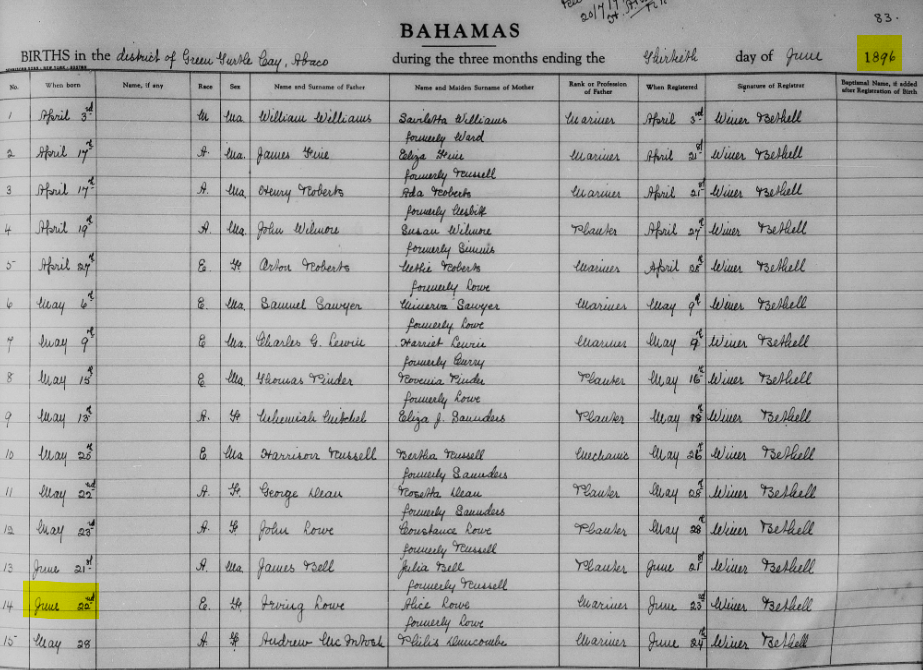 20/7/1
83.
BAHAMAS
BIRTHS in the district of Green Turtle Cay, Abaco during the three months ending the Thirtieth day of June 1896
No. When born Name, if any Race Sex Name and Surname of Father Name and Maiden Surname of Mother Rank or Profession of Father When Registered Signature of Registrar Baptismal Name, if added after Registration of Birth
1 April 3rd Ma William Williams Williams Mariner April 3rd Winer Bethell
formerly Ward
2 April 17th A. Ma. James Eliza Mariner April 21st Winer Bethell
formerly Russell
3 April 17th A. Ma Henry Roberts Ada Roberts Mariner April 21st Winer Bethell
formerly Nesbitt
4 April 19th A. Ma John Wilmore Susan Wilmore Planter April 27th Winer Bethell
formerly Simms
5 April 27th E. F. Arton Roberts Nettie Roberts Mariner April 28th Winer Bethell
formerly Lowe
6 May 6th E. Ma. Samuel Sawyer Minerva Sawyer Mariner May 9th Winer Bethell
formerly Lowe
7 May 9th E Ma. Charles G. Lowrie Harriet Lowrie Mariner May 9th Winer Bethell
formerly Curry
8 May 15th E Ma. Thomas Pinder Rovenia Pinder Planter May 16th Winer Bethell
formerly Lowe
9 May 13th A. F. Nehemiah Mitchel Eliza J. Saunders Planter May 18th Winer Bethell
10 May 20th E. Ma Harrison Russell Bertha Russell Mechanic May 26th Winer Bethell
formerly Saunders
11 May 22nd A. F. George Dean Rosetta Dean Planter May 28th Winer Bethell
formerly Saunders
12 May 23rd A. F John Lowe Constance Lowe Planter May 28th Winer Bethell
formerly Russell
13 June 21st A. Ma. James Bell Julia Bell Planter June 21st Winer Bethell
formerly Russell
14 June 22nd E. F. Irving Lowe Alice Lowe Mariner June 23rd Winer Bethell
formerly Lowe
15 May 28 A F Andrew McIntosh Philis Duncombe Mariner June 24th Winer Bethell